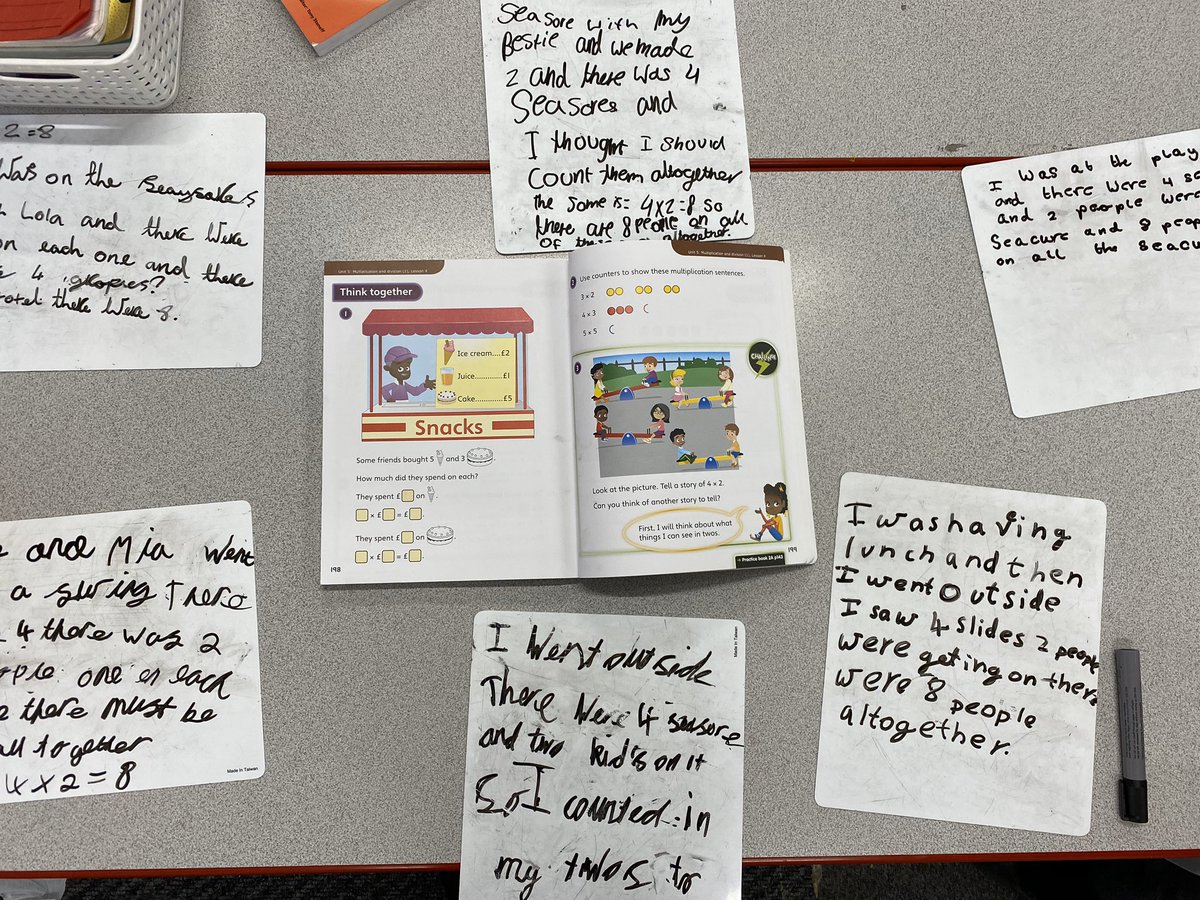 seasore with my
Bestie and we made
2 and there was 4
Seasores and
I thought I should
count them altogether
the some is= 4x2=8 so
there are 8 people on all
of altogether.
2=8
Was on the
Lola and there were
on each one and there
4 gropies?
total there were 8.
I was at the play
and there were 4 se
and 2 people were
Seacure and 8 peop
on all the seacu
Unit 5: Multiplication and division (1), Lesson 8
Think together
1
Ice cream....£2
Juice............£1
Cake............£5
Snacks
Some friends bought 5 and 3 .
How much did they spend on each?
They spent £ on .
× £ = £ .
They spent £ on .
× £ = £ .
198
Unit 5: Multiplication and division (1), Lesson 8
2 Use counters to show these multiplication sentences.
3 × 2
4 × 3
5 × 5
CHALLENGE
3
Look at the picture. Tell a story of 4 × 2.
Can you think of another story to tell?
First, I will think about what
things I can see in twos.
Practice book 2A p142
199
and Mia went
a swing There
4 there was 2
one on each
there must be
all together
4 x 2 = 8
Made in Taiwan
I went outside
There were 4 seasore
and two kid's on it
So I counted in
my twos to
Made in Taiwan
I was having
lunch and then
I went outside
I saw 4 slides 2 people
were geting on there
were 8 people
altogether.